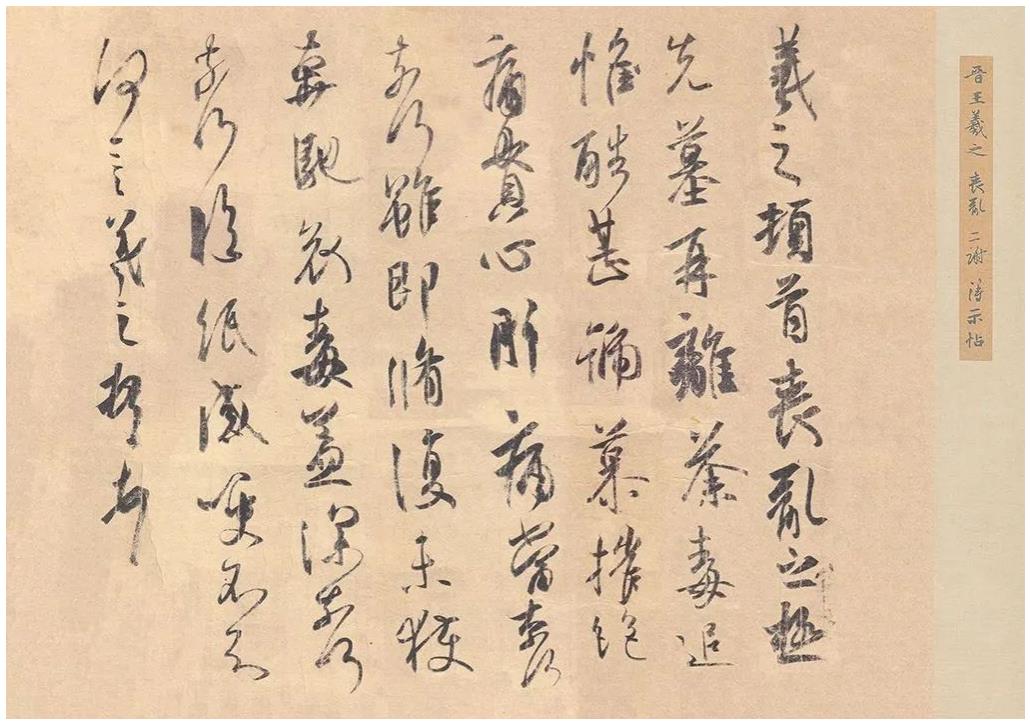 晋王羲之 喪亂 二謝 得示帖
羲之頓首喪亂之極
先墓再離荼毒追
惟酷甚號慕摧絶
痛貫心肝痛當奈何
奈何雖即脩復未獲
奔馳哀毒益深奈何
奈何臨紙感哽不知
何言羲之頓首頓首